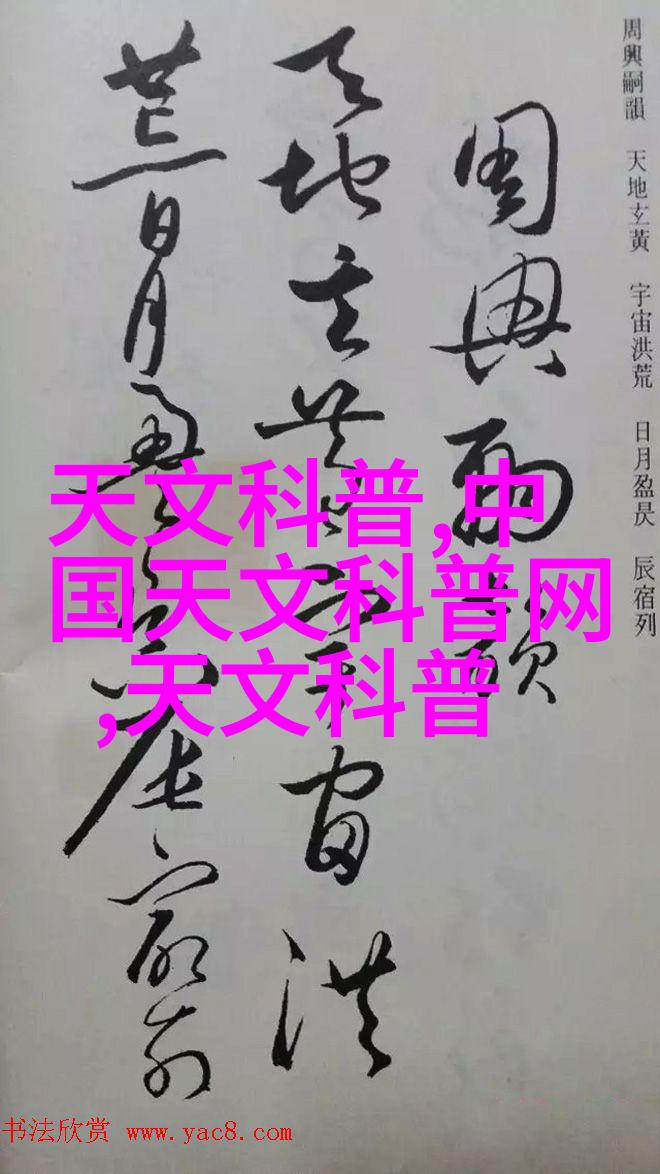 周興嗣韻　天地玄黃　宇宙洪荒　日月盈昃　辰宿列
周興嗣韻
天地玄黃宇宙洪
荒日月盈昃辰宿列
天文科普,中
国天文科普网
,天文科普
书法欣赏 www.yac8.com